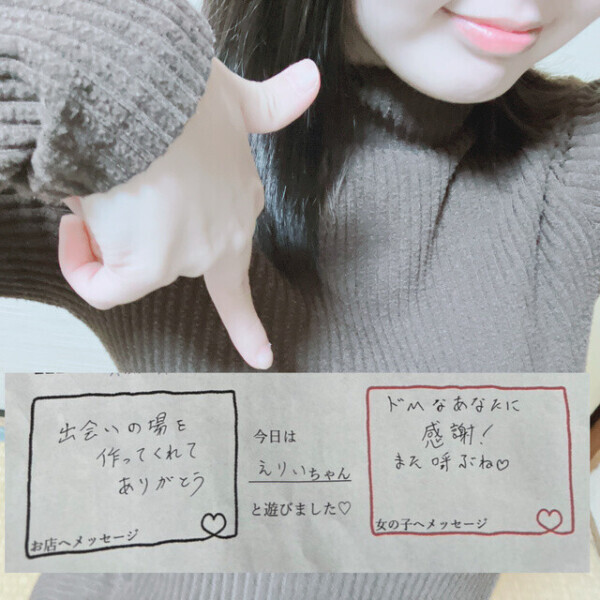 出会いの場を
作ってくれて
ありがとう
お店へメッセージ
今日は
えりいちゃん
と遊びました♡
ドMなあなたに
感謝!
また呼ぶね♡
女の子へメッセージ